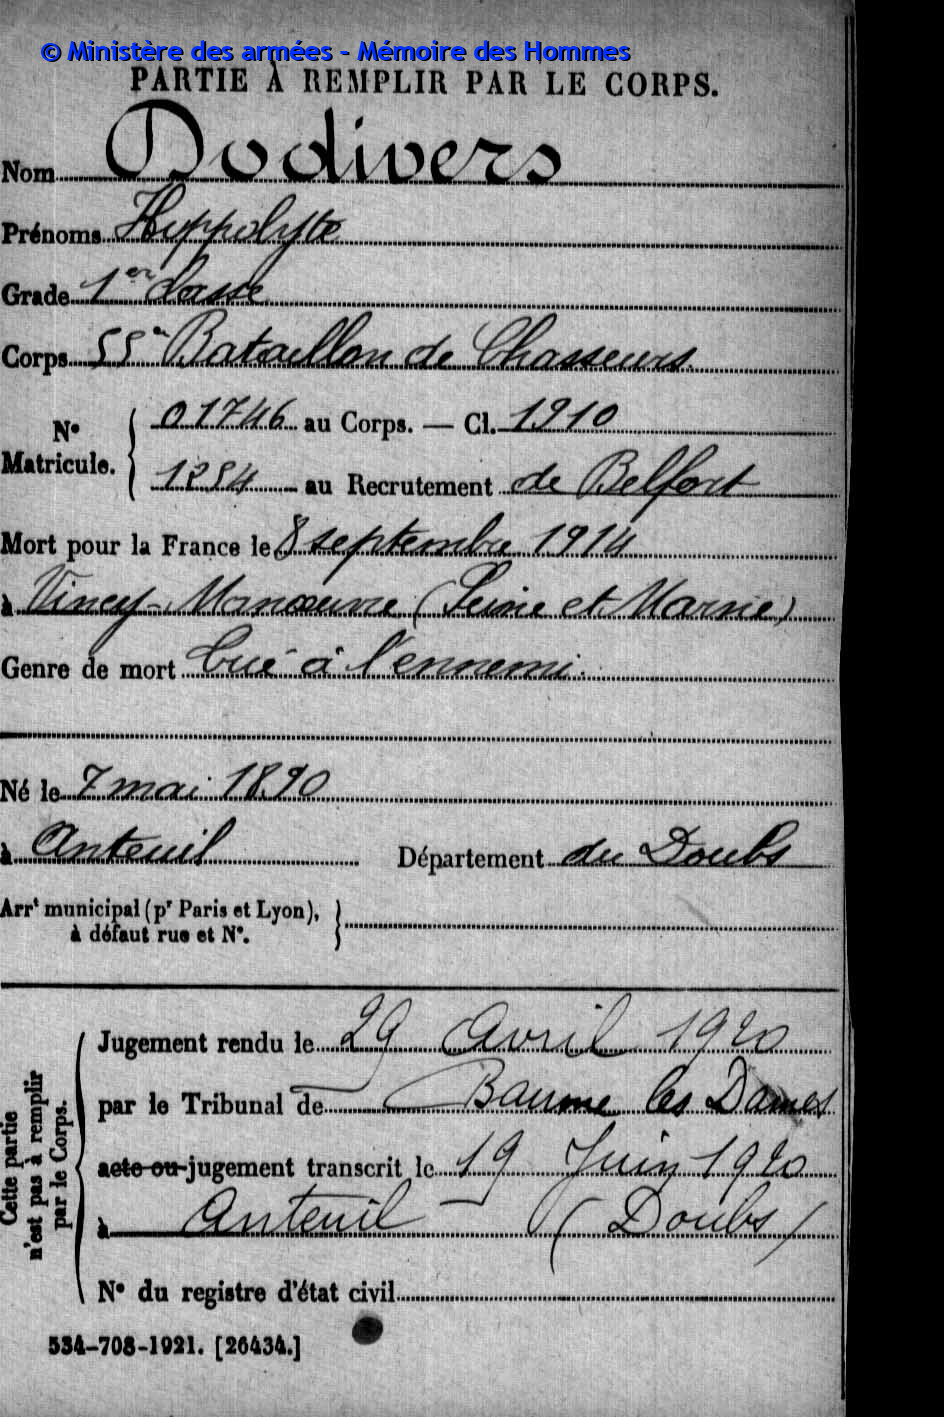 © Ministère des armées - Mémoire des Hommes
PARTIE À REMPLIR PAR LE CORPS.
Nom Dodivers
Prénoms Hyppolyte
Grade 1er classe
Corps 55e Bataillon de Chasseurs.
N° Matricule. 01746 au Corps. — Cl. 1910
1284 au Recrutement de Belfort
Mort pour la France le 8 septembre 1914
à Vincy-Manœuvre (Seine et Marne)
Genre de mort Tué à l'ennemi.
Né le 7 mai 1890
à Anteuil Département du Doubs
Arrt municipal (pr Paris et Lyon),
à défaut rue et N°.
Cette partie
n'est pas à remplir
par le Corps.
Jugement rendu le 29 Avril 1920
par le Tribunal de Baume les Dames
acte ou jugement transcrit le 19 Juin 1920
à Anteuil (Doubs)
N° du registre d'état civil
534-708-1921. [26434.]